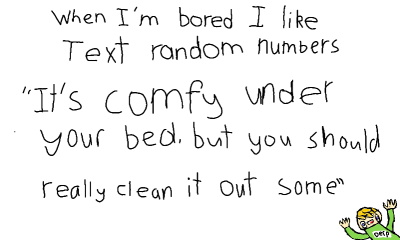 When I'm bored I like
Text random numbers
"It's comfy under
your bed. but you should
really clean it out some"
Derp